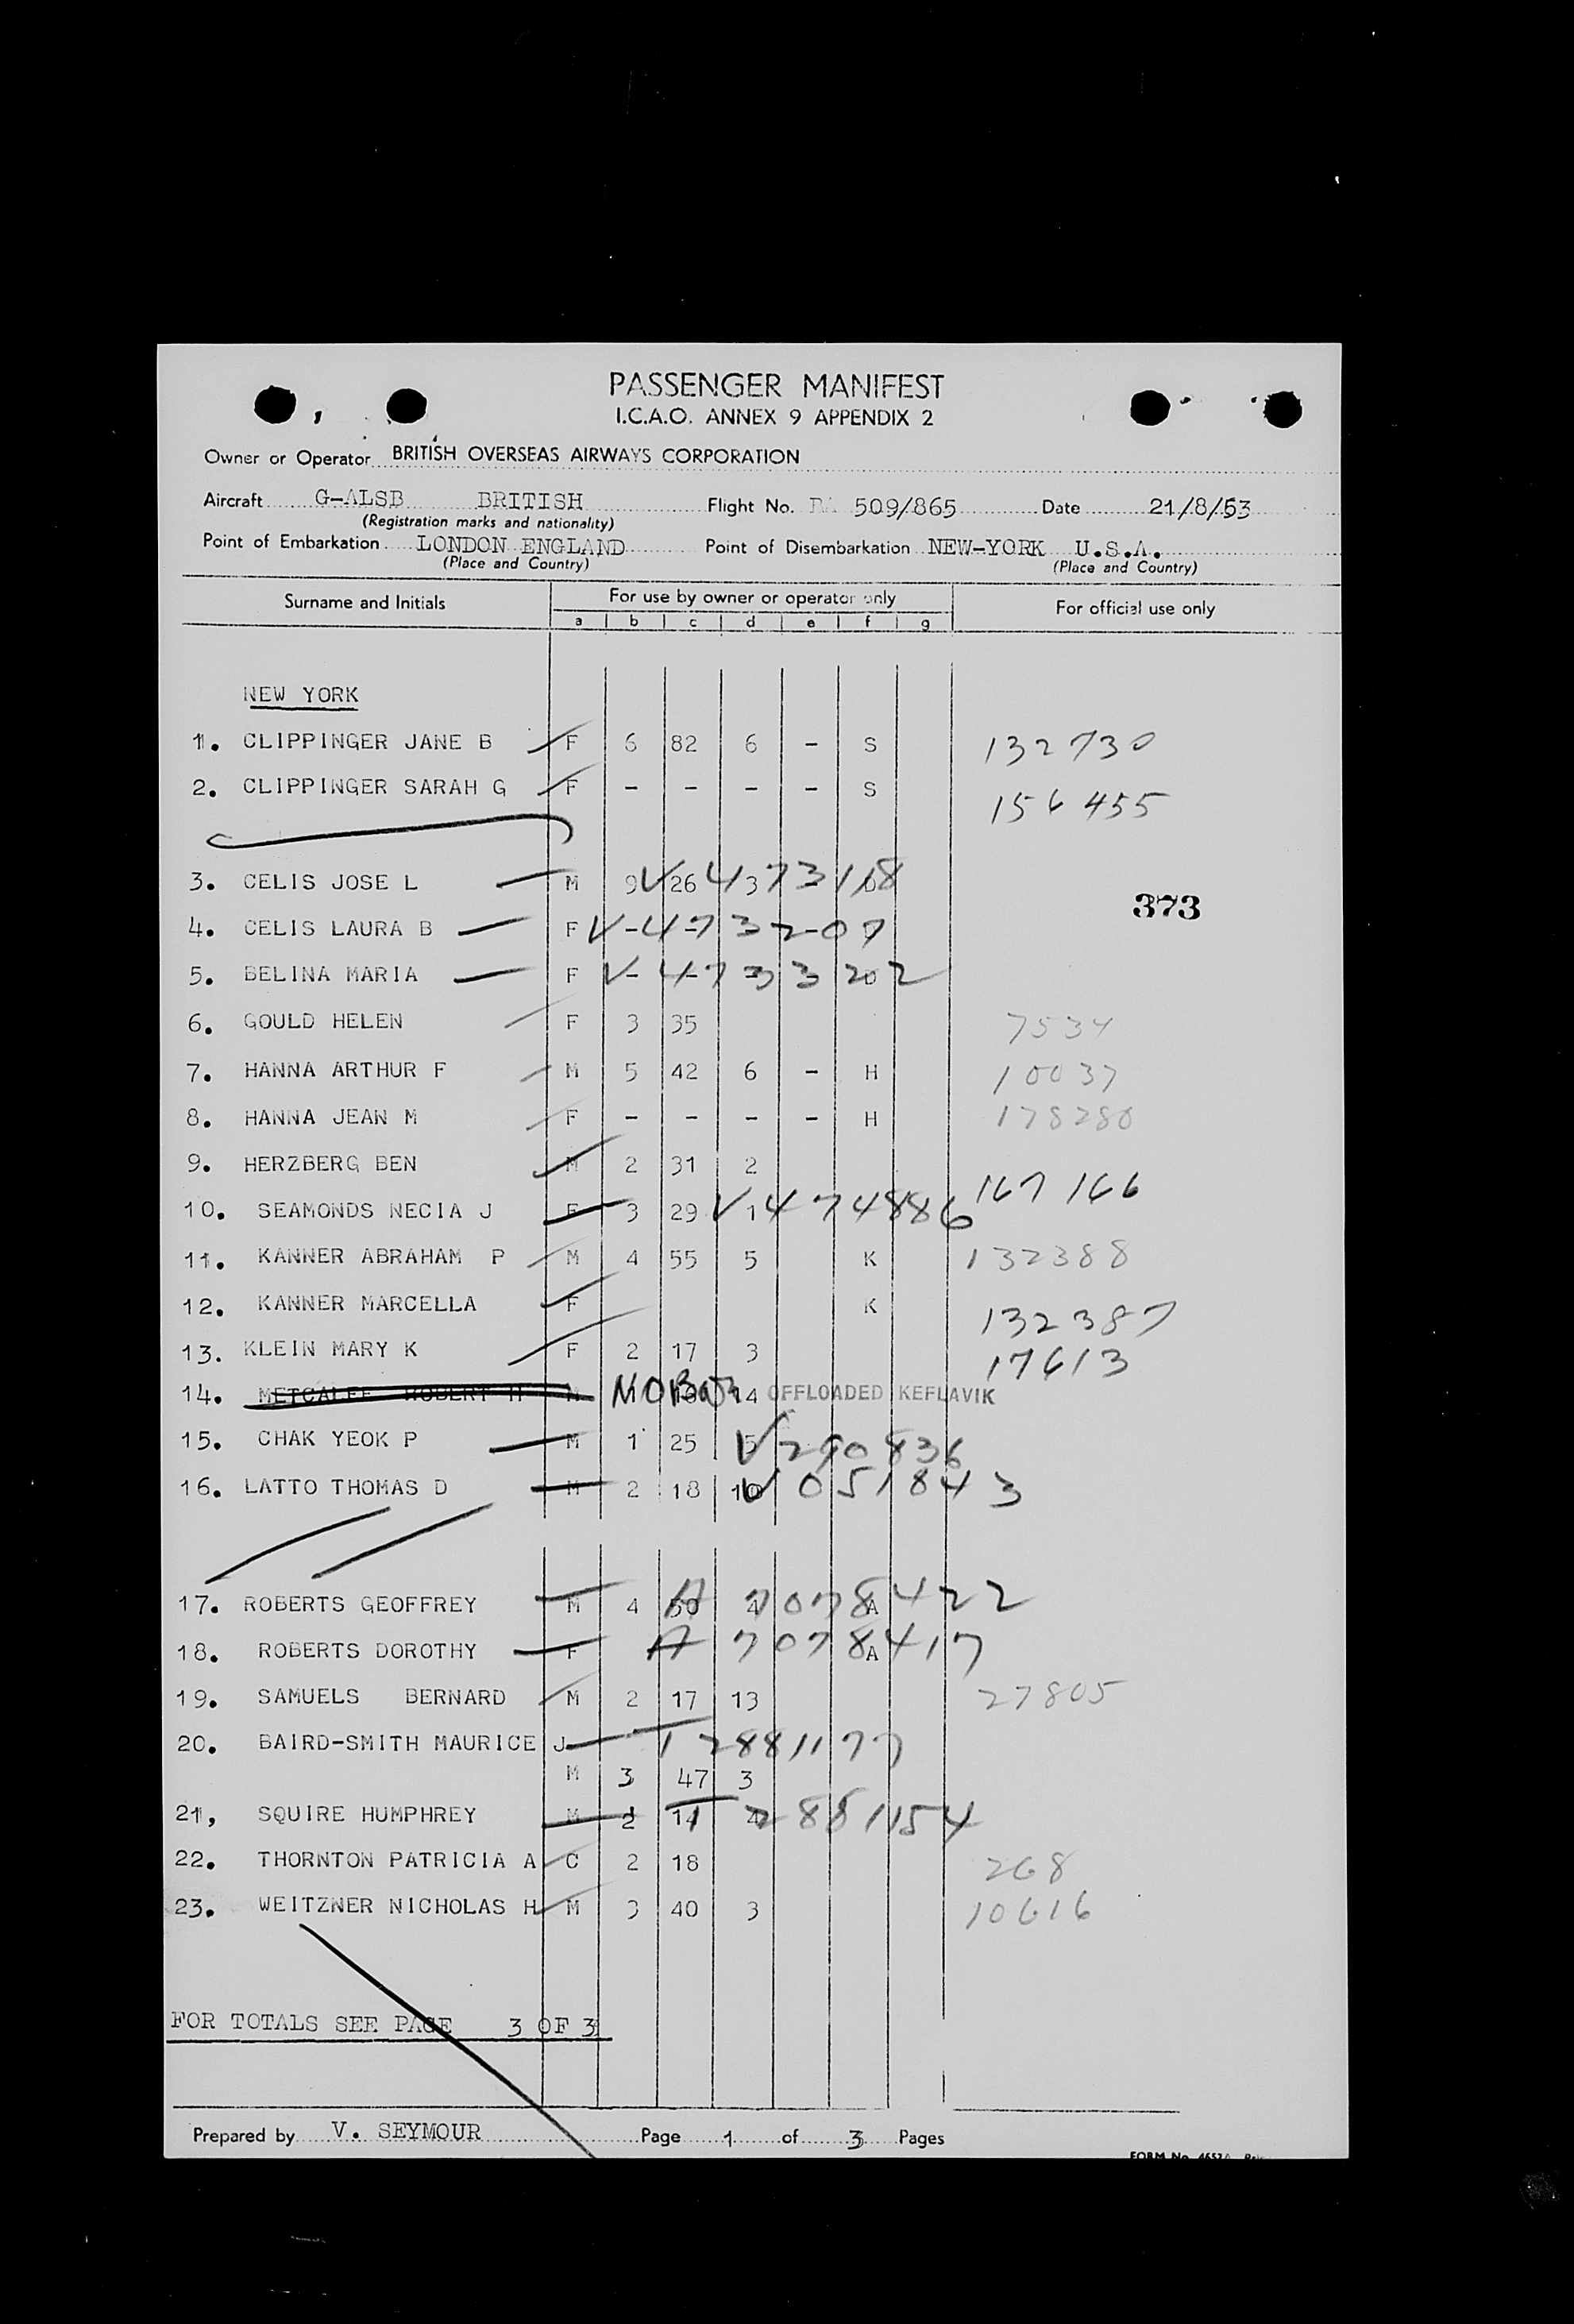 PASSENGER MANIFEST
I.C.A.O. ANNEX 9 APPENDIX 2
Owner or Operator BRITISH OVERSEAS AIRWAYS CORPORATION
Aircraft G-ALSB BRITISH Flight No. BA 509/865 Date 21/8/53
(Registration marks and nationality)
Point of Embarkation LONDON ENGLAND Point of Disembarkation NEW-YORK U.S.A.
(Place and Country) (Place and Country)
Surname and Initials For use by owner or operator only For official use only
a b c d e f g
NEW YORK
1. CLIPPINGER JANE B F 6 82 6 - S 132730
2. CLIPPINGER SARAH G F - - - - S 156455
3. CELIS JOSE L M 9 26 3 V 473118
373
4. CELIS LAURA B F V-473207
5. BELINA MARIA F V-4733202
6. GOULD HELEN F 3 35 7534
7. HANNA ARTHUR F M 5 42 6 - H 10037
8. HANNA JEAN M F - - - - H 178280
9. HERZBERG BEN M 2 31 2 167166
10. SEAMONDS NECIA J F 3 29 1 V474886
11. KANNER ABRAHAM P M 4 55 5 K 132388
12. KANNER MARCELLA F K 132387
13. KLEIN MARY K F 2 17 3 17613
14. METCALFE ROBERT H M 14 OFFLOADED KEFLAVIK
15. CHAK YEOK P M 1 25 5 V290836
16. LATTO THOMAS D M 2 18 10 V051843
17. ROBERTS GEOFFREY M 4 50 4 A A 7078422
18. ROBERTS DOROTHY F A A 7078417
19. SAMUELS BERNARD M 2 17 13 27805
20. BAIRD-SMITH MAURICE J T 2881177
M 3 47 3
21, SQUIRE HUMPHREY M 2 14 4 T 2881154
22. THORNTON PATRICIA A C 2 18 268
23. WEITZNER NICHOLAS H M 3 40 3 10616
FOR TOTALS SEE PAGE 3 OF 3
Prepared by V. SEYMOUR Page 1 of 3 Pages
FORM No.